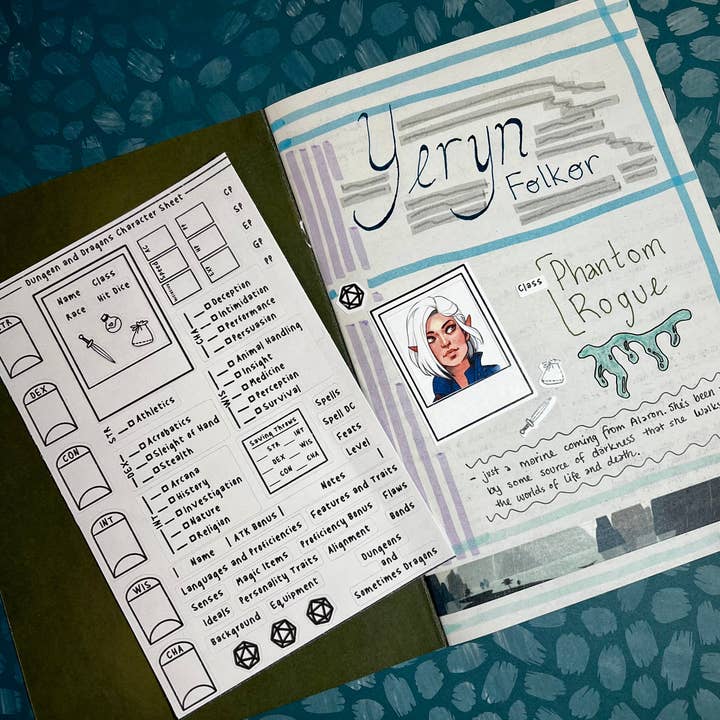 Dungeon and Dragons Character Sheet
STR
DEX
CON
INT
WIS
CHA
Name Class
Race Hit Dice
AC
HP
Speed
EXP
CP
SP
EP
GP
PP
STR
Athletics
DEX
Acrobatics
Sleight of Hand
Stealth
INT
Arcana
History
Investigation
Nature
Religion
CHA
Deception
Intimidation
Performance
Persuasion
WIS
Animal Handling
Insight
Medicine
Perception
Survival
Saving Throws
STR INT
DEX WIS
CON CHA
Spells
Spell DC
Feats
Level
Name | ATK Bonus | Notes
Languages and Proficiencies Features and Traits
Senses Magic Items Proficiency Bonus Flaws
Ideals Personality Traits Alignment Bonds
Background Equipment
Dungeons
and
Sometimes Dragons
Yeryn
Folkor
Class
Phantom
Rogue
- just a marine coming from Alaron. She's been
by some source of darkness that she walk
the worlds of life and death.